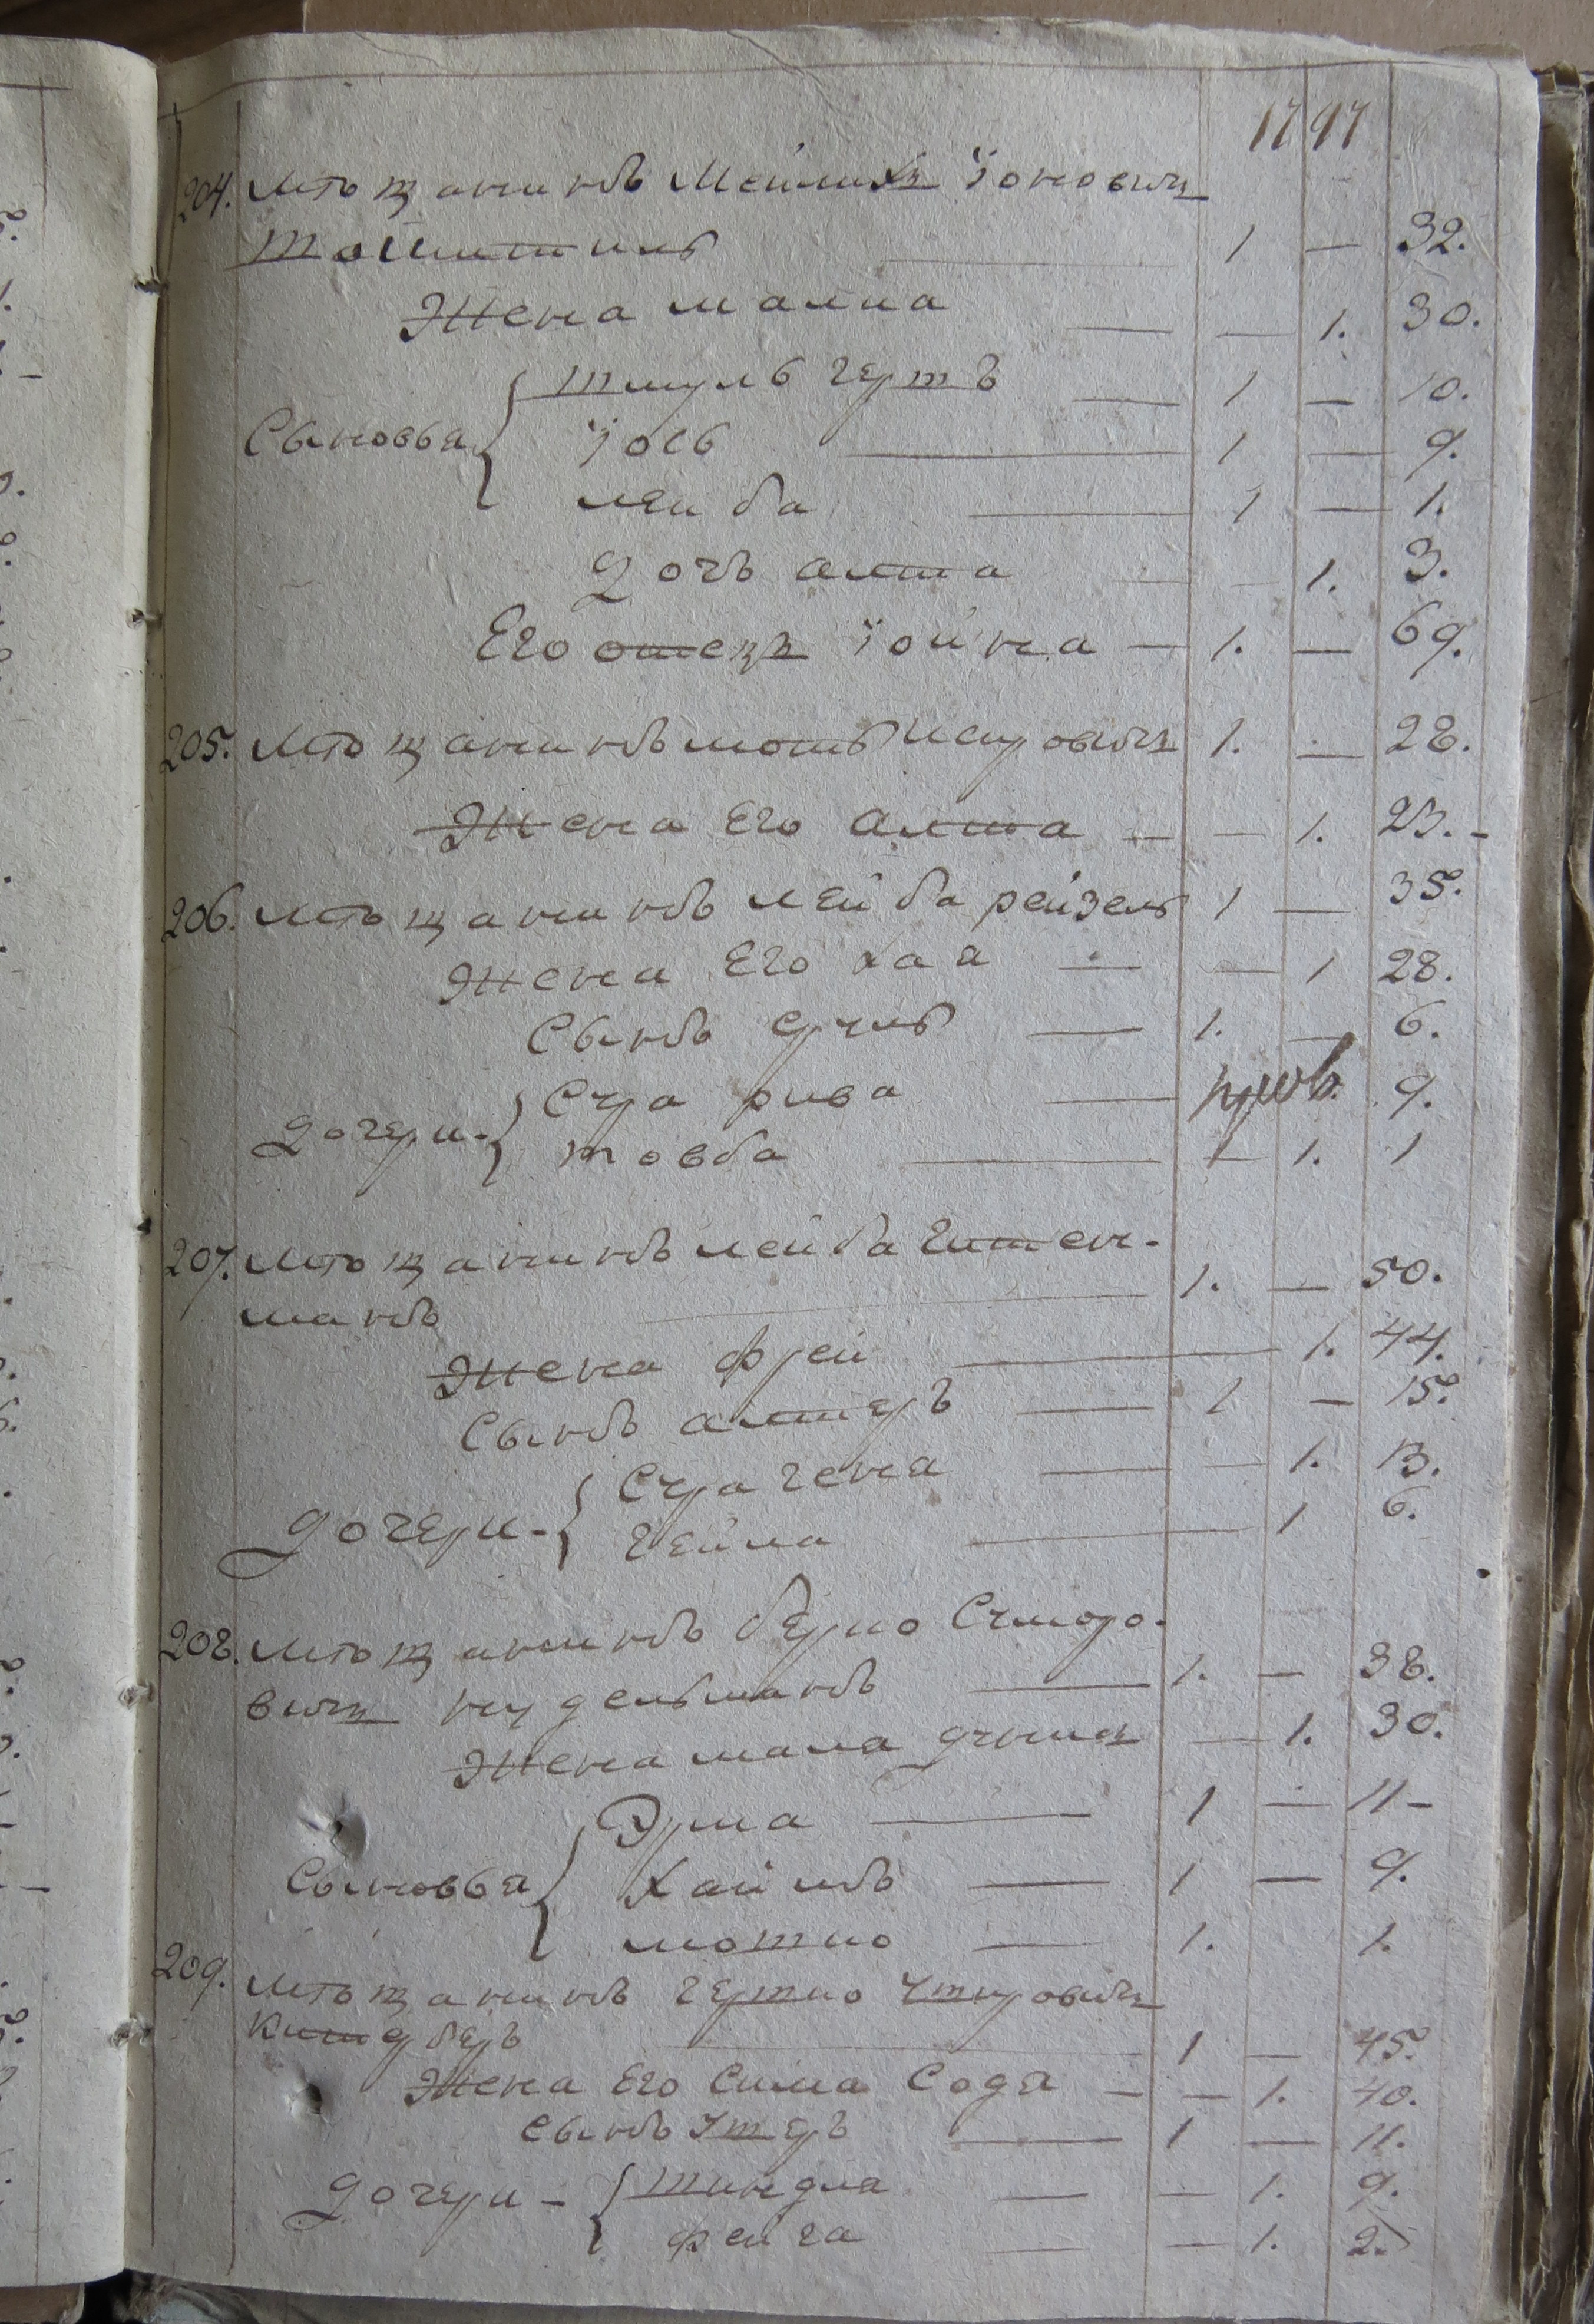 1797
204. мѣщанинъ Мейлихъ Іоновичъ
1 — 32.
Жена малка — — 1. 30.
Шмуль гершъ — 1 — 10.
Сыновья Іось — 1 — 9.
лейба — 1 — 1.
Дочь алта — — 1. 3.
Его отецъ Іойна — 1. — 69.
205. мѣщанинъ мошь 1. — 28.
Жена Его Алта — — 1. 23. -
206. мѣщанинъ лейба рейзель 1 — 35.
Жена Его хая — — 1 28.
Сынъ сруль — 1. — 6.
Сура рива — 9.
Дочери - товба — — 1. 1
207. мѣщанинъ лейба Гитель-
манъ — 1. — 50.
Жена фрей — 1. 44.
Сынъ алтеръ — 1 — 15.
Сура гена — — 1. 13.
Дочери - гейла — 1 6.
208. мѣщанинъ берко
вичъ нудельманъ — 1. — 38.
Жена мала — 1. 30.
Эрша — 1 — 11 -
Сыновья Хаимъ — 1 — 9.
мошко — 1. 1.
209. мѣщанинъ гершко
1 — 45.
Жена Его Сима Содя — — 1. 40.
сынъ ушеръ — 1 — 11.
Дочери - шиндла — — 1. 9.
фейга — — 1. 2.